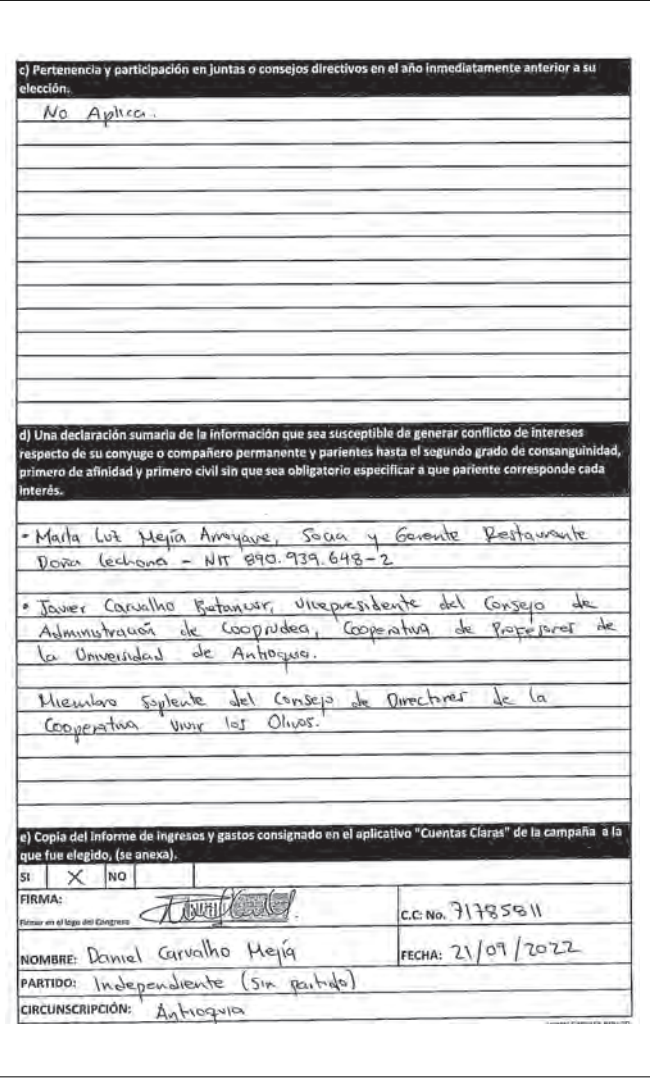 c) Pertenencia y participación en juntas o consejos directivos en el año inmediatamente anterior a su
elección.
No Aplica.
d) Una declaración sumaria de la información que sea susceptible de generar conflicto de intereses
respecto de su conyuge o compañero permanente y parientes hasta el segundo grado de consanguinidad,
primero de afinidad y primero civil sin que sea obligatorio especificar a que pariente corresponde cada
interés.
• Marla Luz Mejía Arroyave, Socia y Gerente Restaurante
Doña lechona - NIT 890.939.648-2
• Javier Carvalho Betancur, Vicepresidente del Consejo de
Administración de Cooprudea, Cooperativa de Profesores de
la Universidad de Antioquia.
Miembro Suplente del Consejo de Directores de la
Cooperativa Vivir los Olivos.
e) Copia del informe de ingresos y gastos consignado en el aplicativo "Cuentas Claras" de la campaña a la
que fue elegido, (se anexa).
SI X NO
FIRMA:
Firmar en el logo del Congreso
C.C: No. 71785811
NOMBRE: Daniel Carvalho Mejía FECHA: 21/09/2022
PARTIDO: Independiente (Sin partido)
CIRCUNSCRIPCIÓN: Antioquia